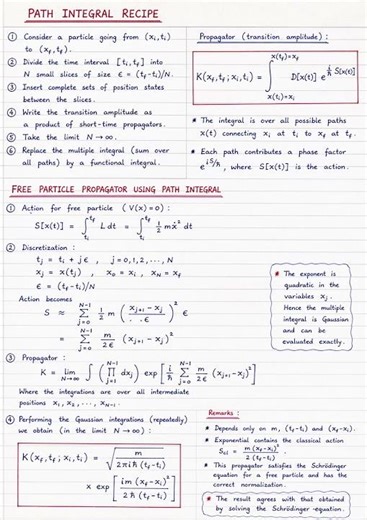 PATH INTEGRAL RECIPE
① Consider a particle going from (xᵢ,tᵢ)
to (x_f,t_f).
② Divide the time interval [tᵢ,t_f] into
N small slices of size ϵ = (t_f-tᵢ)/N.
③ Insert complete sets of position states
between the slices.
④ Write the transition amplitude as
a product of short-time propagators.
⑤ Take the limit N→∞.
⑥ Replace the multiple integral (sum over
all paths) by a functional integral.
Propagator (transition amplitude) :
K(x_f,t_f;xᵢ,tᵢ) = ∫_{x(tᵢ)=xᵢ}^{x(t_f)=x_f} D[x(t)] e^{i/ħ S[x(t)]}
* The integral is over all possible paths
x(t) connecting xᵢ at tᵢ to x_f at t_f.
* Each path contributes a phase factor
e^{iS/ħ}, where S[x(t)] is the action.
FREE PARTICLE PROPAGATOR USING PATH INTEGRAL
① Action for free particle (V(x)=0) :
S[x(t)] = ∫_{tᵢ}^{t_f} L dt = ∫_{tᵢ}^{t_f} 1/2 m ẋ² dt
② Discretization :
t_j = tᵢ + jϵ , j=0,1,2,...,N
x_j = x(t_j) , x₀ = xᵢ , x_N = x_f
ϵ = (t_f-tᵢ)/N
Action becomes
S ≈ ∑_{j=0}^{N-1} 1/2 m ( (x_{j+1} - x_j) / ..ϵ )² ϵ
= ∑_{j=0}^{N-1} m/2ϵ (x_{j+1} - x_j)²
* The exponent is
quadratic in the
variables x_j.
Hence the multiple
integral is Gaussian
and can be
evaluated exactly.
③ Propagator :
K = lim_{N→∞} ∫ ( ∏_{j=0}^{N-1} dx_j ) exp [ i/ħ ∑_{j=0}^{N-1} m/2ϵ (x_{j+1}-x_j)² ]
Where the integrations are over all intermediate
positions x₁, x₂, ..., x_{N-1}.
④ Performing the Gaussian integrations (repeatedly)
we obtain (in the limit N→∞) :
K(x_f,t_f;xᵢ,tᵢ) = √( m / 2πiħ (t_f-tᵢ) )
× exp [ im (x_f-xᵢ)² / 2ħ (t_f-tᵢ) ]
Remarks :
* Depends only on m, (t_f-tᵢ) and (x_f-xᵢ).
* Exponential contains the classical action
S_cl = m(x_f-xᵢ)² / 2(t_f-tᵢ) .
* This propagator satisfies the Schrödinger
equation for a free particle and has the
correct normalization.
* The result agrees with that obtained
by solving the Schrödinger equation.